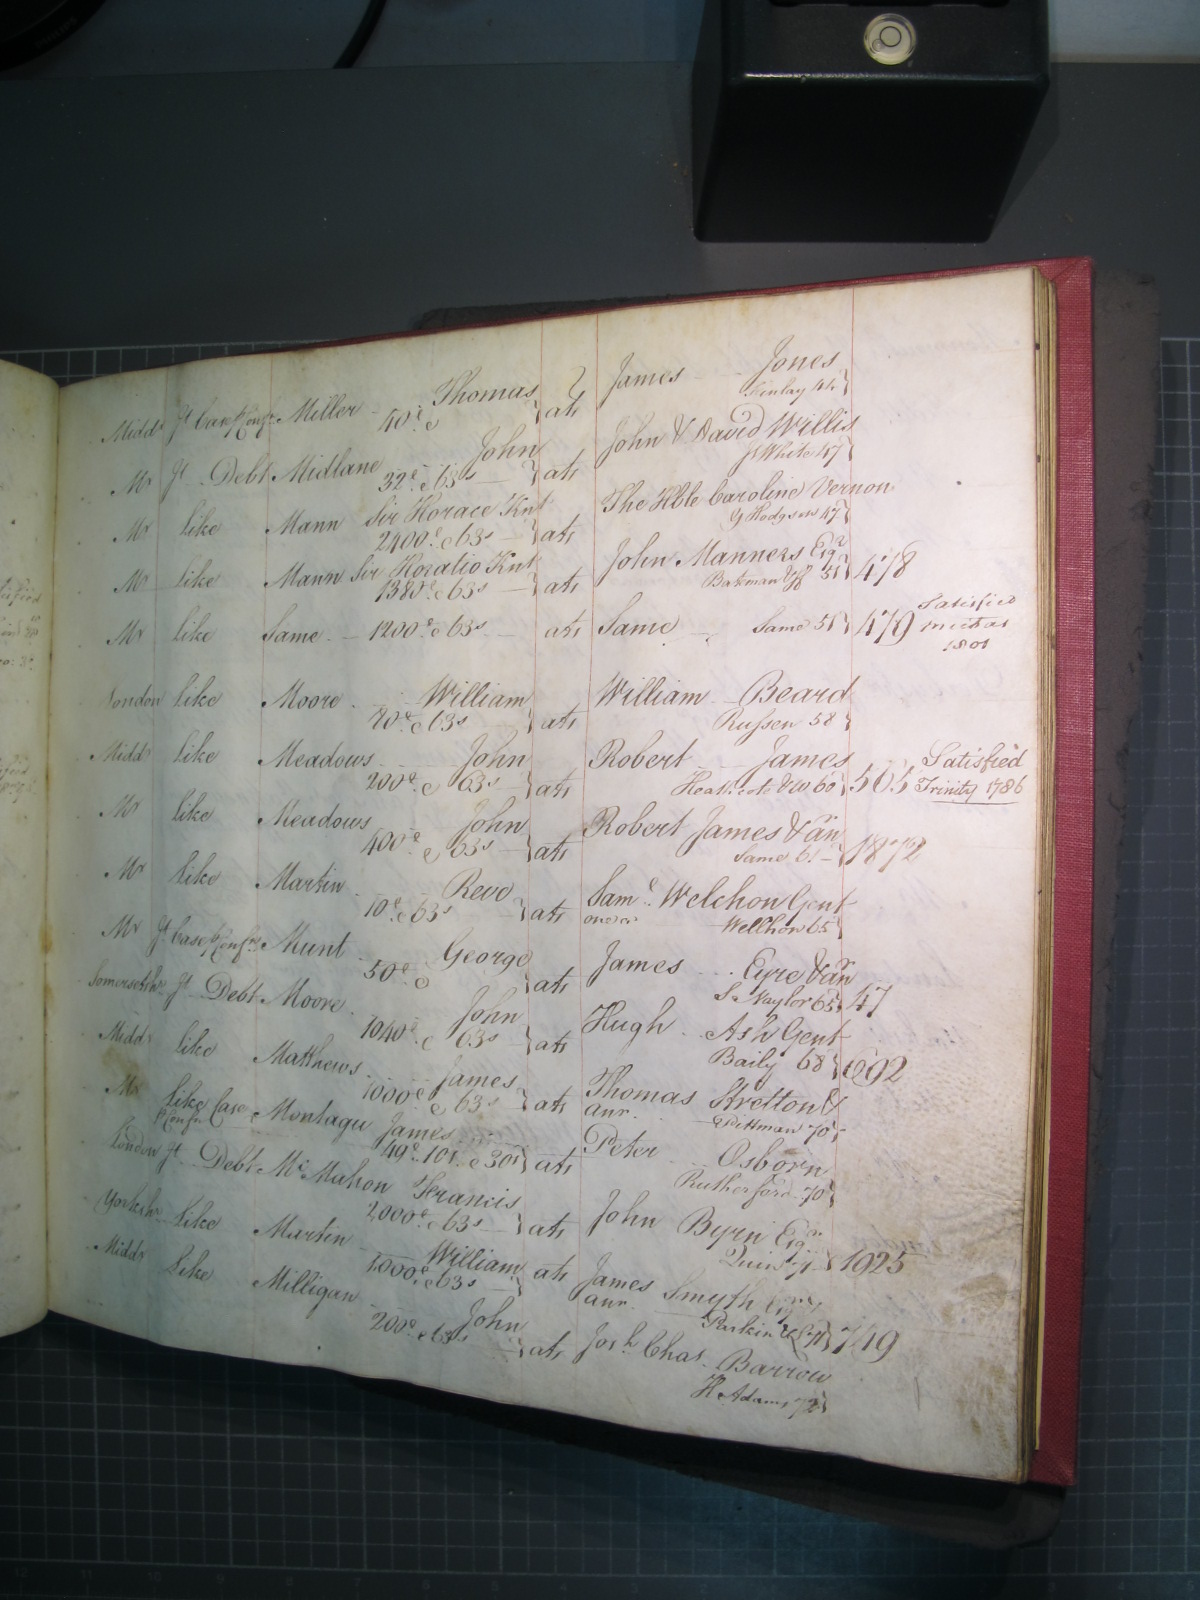 Midds Jt Case p Confn Miller Thomas James Jones
40£ ats Finlay 44
Mx Jt Debt Midlane John John & David Willis
32£ & 63s ats J White 47
Mx like Mann Sir Horace Knt The Hble Caroline Vernon
2400£ & 63s ats G Hodgson 47
Mx like Mann Sir Horatio Knt John Manners Esqr
1380£ & 63s ats Bateman 51 478
Mx like Same 1200£ & 63s ats Same Same 51 479 Satisfied
1801
London like Moore William William Beard
& 63s ats Russen 58
Midds like Meadows John Robert James Satisfied
200£ & 63s ats Heathcote & W 60 505 Trinity 1786
Mx like Meadows John Robert James & an
400£ & 63s ats Same 61 1872
Mx like Martin Revd Saml Welchon Gent
10£ & 63s ats one &c Wellhon 65
Mx Jt Case p Confn Munt George James Eyre & an
50£ ats S Naylor 65 47
Somersetshr Jt Debt Moore John Hugh Ash Gent
1040£ & 63s ats Baily 68 1692
Midds like Matthews James Thomas Stretton &
1000£ & 63s ats anr Pittman 70
Mx like Case Montagu James Peter Osborn
p Confn 49£ 10s & 30s ats Rutherford 70
London Jt Debt McMahon Francis John Byrn Esqr
2000£ & 63s ats 71 1925
Yorkshr like Martin William James Smyth
1000£ & 63s ats anr Parkin 749
Midds like Milligan John Josh Chas Barrow
200£ & 63s ats H Adams 72